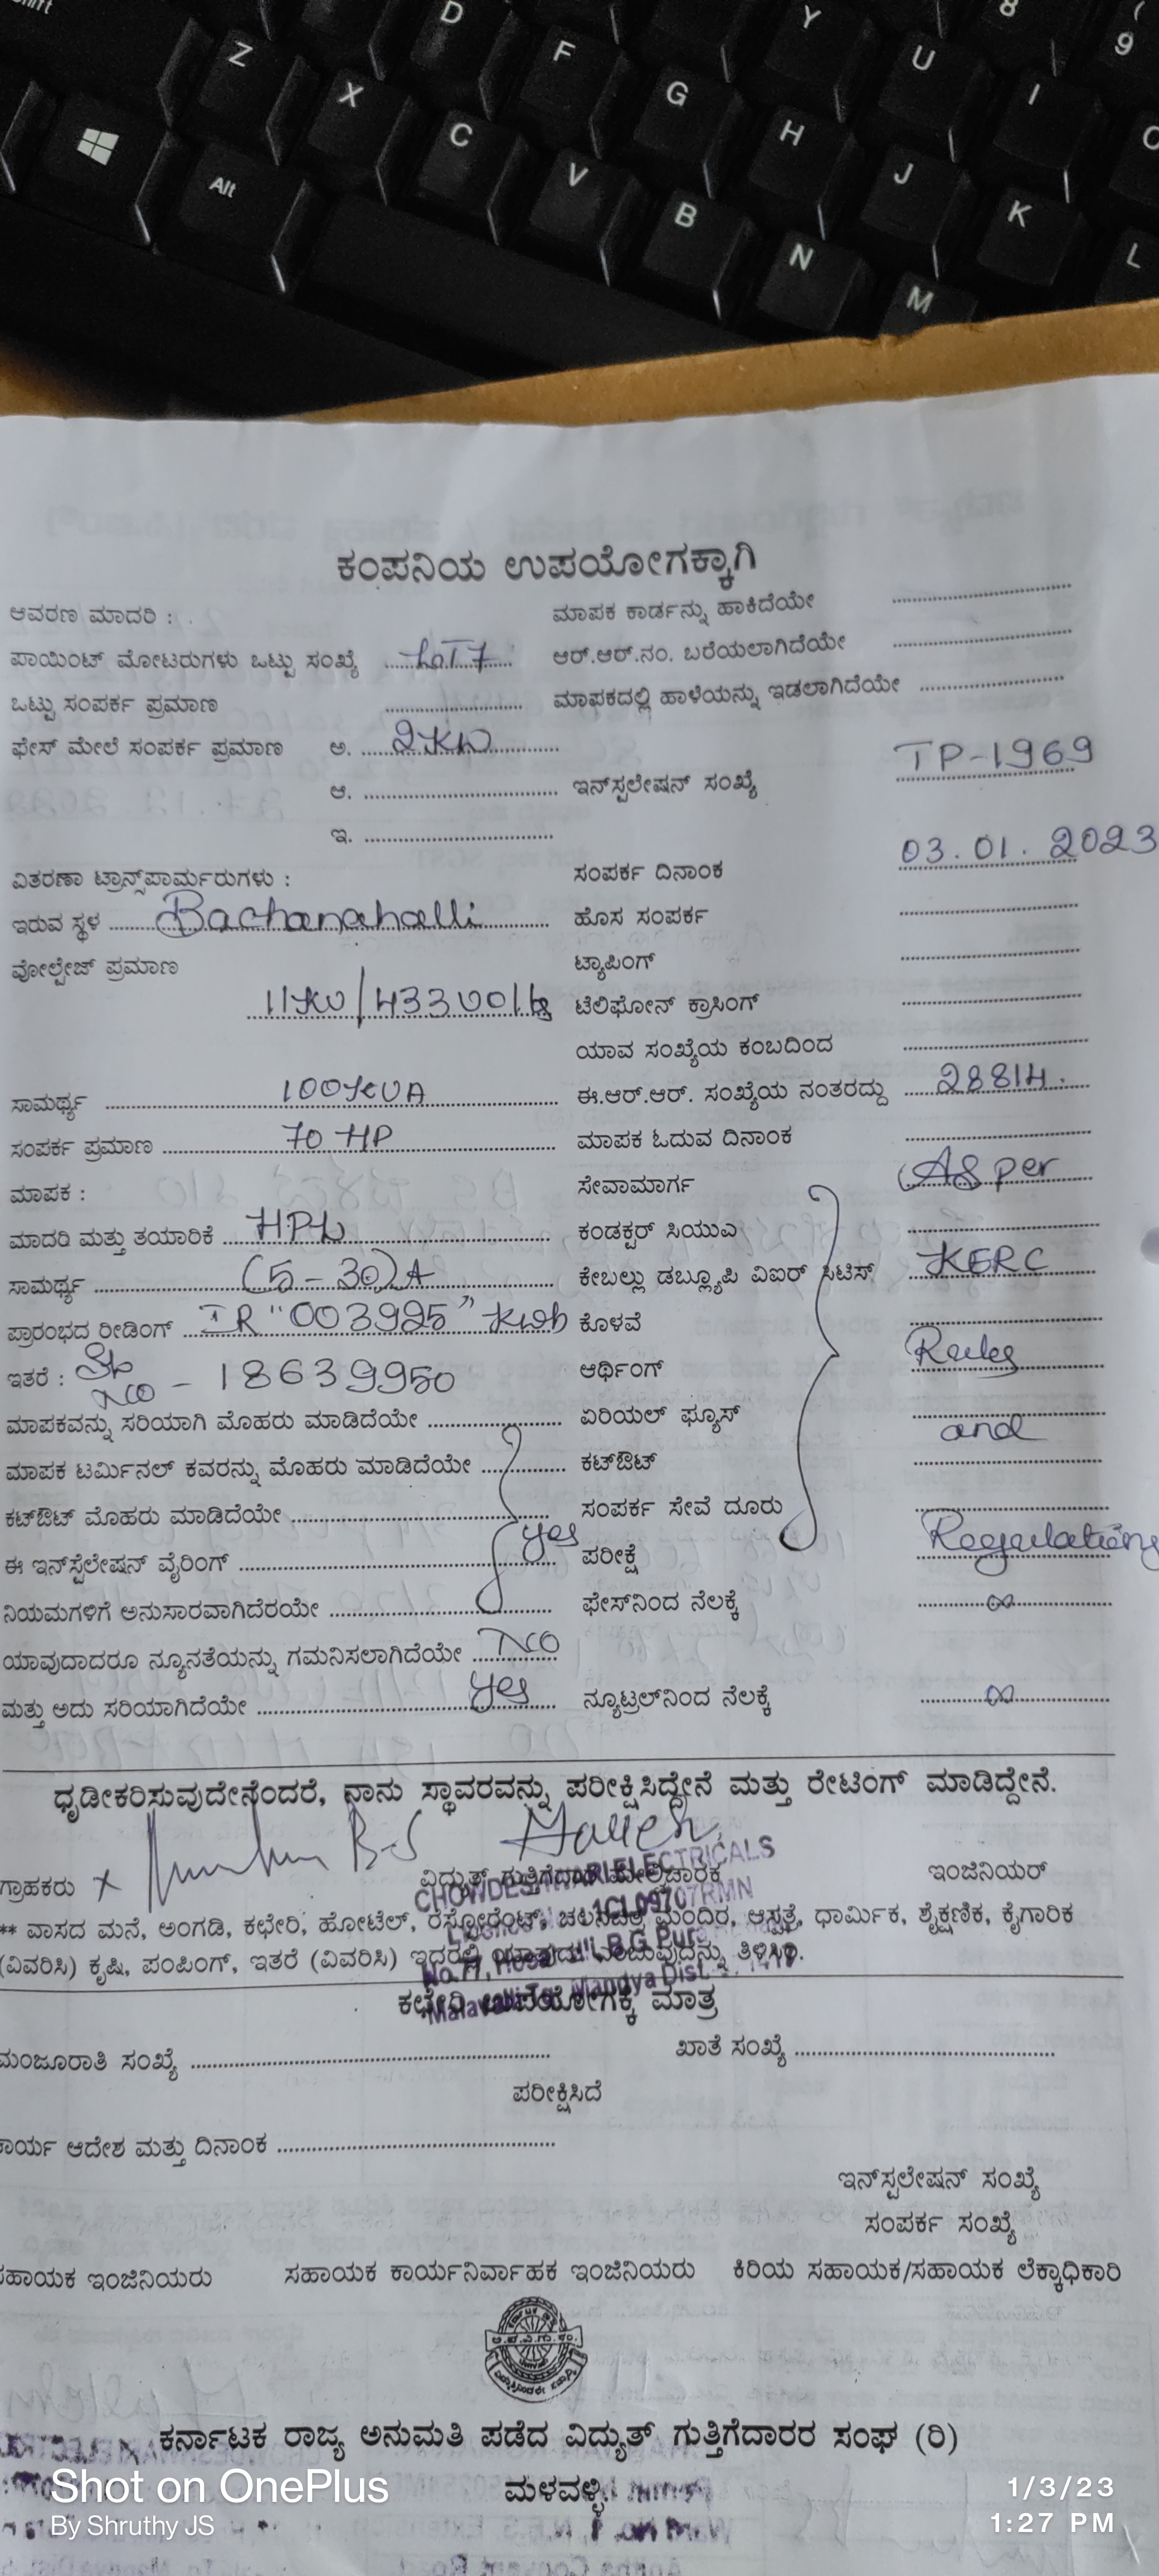 Shift
D
F
Y
U
8
(
9
Z
X
C
G
H
I
O
Alt
V
B
J
K
N
M
L
ಕಂಪನಿಯ ಉಪಯೋಗಕ್ಕಾಗಿ
ಆವರಣ ಮಾದರಿ : ಮಾಪಕ ಕಾರ್ಡನ್ನು ಹಾಕಿದೆಯೇ ....................
ಪಾಯಿಂಟ್ ಮೋಟರುಗಳು ಒಟ್ಟು ಸಂಖ್ಯೆ ಆರ್.ಆರ್.ನಂ. ಬರೆಯಲಾಗಿದೆಯೇ ....................
ಒಟ್ಟು ಸಂಪರ್ಕ ಪ್ರಮಾಣ .................... ಮಾಪಕದಲ್ಲಿ ಹಾಳೆಯನ್ನು ಇಡಲಾಗಿದೆಯೇ ....................
ಫೇಸ್ ಮೇಲೆ ಸಂಪರ್ಕ ಪ್ರಮಾಣ ಅ. 2KW
ಆ. .................... ಇನ್‌ಸ್ಟಲೇಷನ್ ಸಂಖ್ಯೆ TP-1969
ಇ. ....................
ವಿತರಣಾ ಟ್ರಾನ್ಸ್‌ಪಾರ್ಮರುಗಳು : ಸಂಪರ್ಕ ದಿನಾಂಕ 03.01.2023
ಇರುವ ಸ್ಥಳ Bachanahalli ಹೊಸ ಸಂಪರ್ಕ ....................
ವೋಲ್ಟೇಜ್ ಪ್ರಮಾಣ ಟ್ಯಾಪಿಂಗ್ ....................
11KV/433Volts ಟೆಲಿಫೋನ್ ಕ್ರಾಸಿಂಗ್ ....................
ಯಾವ ಸಂಖ್ಯೆಯ ಕಂಬದಿಂದ ....................
ಸಾಮರ್ಥ್ಯ 100KVA ಈ.ಆರ್.ಆರ್. ಸಂಖ್ಯೆಯ ನಂತರದ್ದು 28814.
ಸಂಪರ್ಕ ಪ್ರಮಾಣ 70 HP ಮಾಪಕ ಓದುವ ದಿನಾಂಕ ....................
ಮಾಪಕ : ಸೇವಾಮಾರ್ಗ As per
ಮಾದರಿ ಮತ್ತು ತಯಾರಿಕೆ HPL ಕಂಡಕ್ಟರ್ ಸಿಯುಎ ....................
ಸಾಮರ್ಥ್ಯ (5-30)A ಕೇಬಲ್ಲು ಡಬ್ಲ್ಯೂಪಿ ವಿಐರ್ ಸಿಟಿಸ್ KERC
ಪ್ರಾರಂಭದ ರೀಡಿಂಗ್ IR "003925" Kwh ಕೊಳವೆ ....................
ಇತರೆ : Sl No - 18639950 ಆರ್ಥಿಂಗ್ Rules
ಮಾಪಕವನ್ನು ಸರಿಯಾಗಿ ಮೊಹರು ಮಾಡಿದೆಯೇ .................... ಏರಿಯಲ್ ಫ್ಯೂಸ್ and
ಮಾಪಕ ಟರ್ಮಿನಲ್ ಕವರನ್ನು ಮೊಹರು ಮಾಡಿದೆಯೇ .................... ಕಟ್‌ಔಟ್ ....................
ಕಟ್‌ಔಟ್ ಮೊಹರು ಮಾಡಿದೆಯೇ .................... ಸಂಪರ್ಕ ಸೇವೆ ದೂರು ....................
ಈ ಇನ್‌ಸ್ಟೆಲೇಷನ್ ವೈರಿಂಗ್ yes ಪರೀಕ್ಷೆ Regulations
ನಿಯಮಗಳಿಗೆ ಅನುಸಾರವಾಗಿದೆರಯೇ .................... ಫೇಸ್‌ನಿಂದ ನೆಲಕ್ಕೆ ∞
ಯಾವುದಾದರೂ ನ್ಯೂನತೆಯನ್ನು ಗಮನಿಸಲಾಗಿದೆಯೇ No
ಮತ್ತು ಅದು ಸರಿಯಾಗಿದೆಯೇ yes ನ್ಯೂಟ್ರಲ್‌ನಿಂದ ನೆಲಕ್ಕೆ ∞
ಧೃಡೀಕರಿಸುವುದೇನೆಂದರೆ, ನಾನು ಸ್ಥಾವರವನ್ನು ಪರೀಕ್ಷಿಸಿದ್ದೇನೆ ಮತ್ತು ರೇಟಿಂಗ್ ಮಾಡಿದ್ದೇನೆ.
ಗ್ರಾಹಕರು X ವಿದ್ಯುತ್ ಗುತ್ತಿಗೆದಾರ ಮೇಲ್ವಿಚಾರಕ ಇಂಜಿನಿಯರ್
CHOWDESHWARI ELECTRICALS
** ವಾಸದ ಮನೆ, ಅಂಗಡಿ, ಕಛೇರಿ, ಹೋಟೆಲ್, ರೆಸ್ಟೋರೆಂಟ್, ಚಲನಚಿತ್ರ ಮಂದಿರ, ಆಸ್ಪತ್ರೆ, ಧಾರ್ಮಿಕ, ಶೈಕ್ಷಣಿಕ, ಕೈಗಾರಿಕ
(ವಿವರಿಸಿ) ಕೃಷಿ, ಪಂಪಿಂಗ್, ಇತರೆ (ವಿವರಿಸಿ) ಇದರಲ್ಲಿ ಯಾವುದು ಎಂಬುವುದನ್ನು ತಿಳಿಸಿ.
ಕಛೇರಿ ಉಪಯೋಗಕ್ಕೆ ಮಾತ್ರ
ಮಂಜೂರಾತಿ ಸಂಖ್ಯೆ .................... ಖಾತೆ ಸಂಖ್ಯೆ ....................
ಪರೀಕ್ಷಿಸಿದೆ
ಕಾರ್ಯ ಆದೇಶ ಮತ್ತು ದಿನಾಂಕ ....................
ಇನ್‌ಸ್ಟಲೇಷನ್ ಸಂಖ್ಯೆ
ಸಂಪರ್ಕ ಸಂಖ್ಯೆ
ಸಹಾಯಕ ಇಂಜಿನಿಯರು ಸಹಾಯಕ ಕಾರ್ಯನಿರ್ವಾಹಕ ಇಂಜಿನಿಯರು ಕಿರಿಯ ಸಹಾಯಕ/ಸಹಾಯಕ ಲೆಕ್ಕಾಧಿಕಾರಿ
ಕರ್ನಾಟಕ ರಾಜ್ಯ ಅನುಮತಿ ಪಡೆದ ವಿದ್ಯುತ್ ಗುತ್ತಿಗೆದಾರರ ಸಂಘ (ರಿ)
ಮಳವಳ್ಳಿ.
Shot on OnePlus
By Shruthy JS
1/3/23
1:27 PM